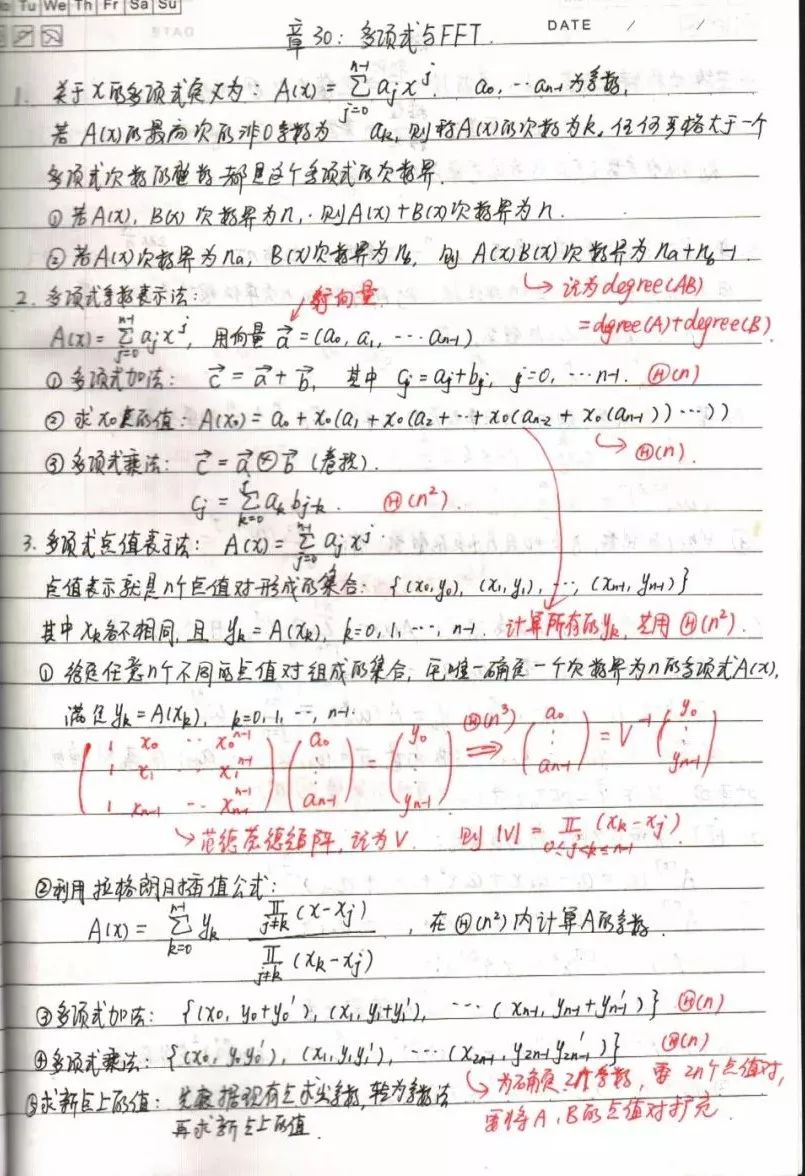 Tu We Th Fr Sa Su
章30: 多项式与FFT. DATE / /
1. 关于x的多项式定义为: A(x) = ∑_{j=0}^{n-1} a_j x^j. a_0, … a_{n-1}为系数,
若 A(x)的最高次的非0系数为 a_k, 则称A(x)的次数为k, 任何严格大于一个
多项式次数的整数都是这个多项式的次数界.
① 若A(x), B(x) 次数界为n, 则A(x)+B(x)次数界为n.
② 若A(x)次数界为n_a, B(x)次数界为n_b, 则 A(x)B(x)次数界为 n_a+n_b-1.
记为degree(AB)
=dgree(A)+degree(B)
2. 多项式系数表示法: 行向量.
A(x) = ∑_{j=0}^{n-1} a_j x^j, 用向量 a⃗ = (a_0, a_1, … a_{n-1})
① 多项式加法: c⃗ = a⃗ + b⃗, 其中 c_j = a_j + b_j, j=0, … n-1. Θ(n)
② 求x_0点的值: A(x_0) = a_0 + x_0(a_1 + x_0(a_2 + … + x_0(a_{n-2} + x_0(a_{n-1})) …))
Θ(n).
③ 多项式乘法: c⃗ = a⃗ ⊗ b⃗ (卷积).
c_j = ∑_{k=0}^{j} a_k b_{j-k}. Θ(n²).
3. 多项式点值表示法: A(x) = ∑_{j=0}^{n-1} a_j x^j.
点值表示就是n个点值对形成的集合: {(x_0, y_0), (x_1, y_1), …, (x_{n-1}, y_{n-1})}
其中x_k各不相同, 且 y_k = A(x_k), k=0, 1, …, n-1. 计算所有的y_k, 花用 Θ(n²).
① 给定任意n个不同的点值对组成的集合, 可唯一确定一个次数界为n的多项式A(x),
满足 y_k = A(x_k), k=0, 1, …, n-1.
(1 x_0 … x_0^{n-1}) (a_0) = (y_0) Θ(n³) (a_0) = V^{-1} (y_0)
(1 x_1 … x_1^{n-1}) (⋮) (⋮) ⟹ (⋮) (⋮)
(1 x_{n-1} … x_{n-1}^{n-1}) (a_{n-1}) (y_{n-1}) (a_{n-1}) (y_{n-1})
范德蒙德矩阵, 记为V. 则 |V| = ∏_{0≤j<k≤n-1} (x_k - x_j)
② 利用拉格朗日插值公式:
A(x) = ∑_{k=0}^{n-1} y_k ∏_{j≠k} (x - x_j) / ∏_{j≠k} (x_k - x_j), 在Θ(n²)内计算A的系数.
③ 多项式加法: {(x_0, y_0+y_0'), (x_1, y_1+y_1'), … (x_{n-1}, y_{n-1}+y_{n-1}')} Θ(n)
④ 多项式乘法: {(x_0, y_0y_0'), (x_1, y_1y_1'), … (x_{2n-1}, y_{2n-1}y_{2n-1}')} Θ(n)
为确定2n个系数, 需 2n个点值对,
需将A, B的点值对扩充
⑤ 求新点上的值: 先根据现有点求出系数, 转为系数法
再求新点上的值.